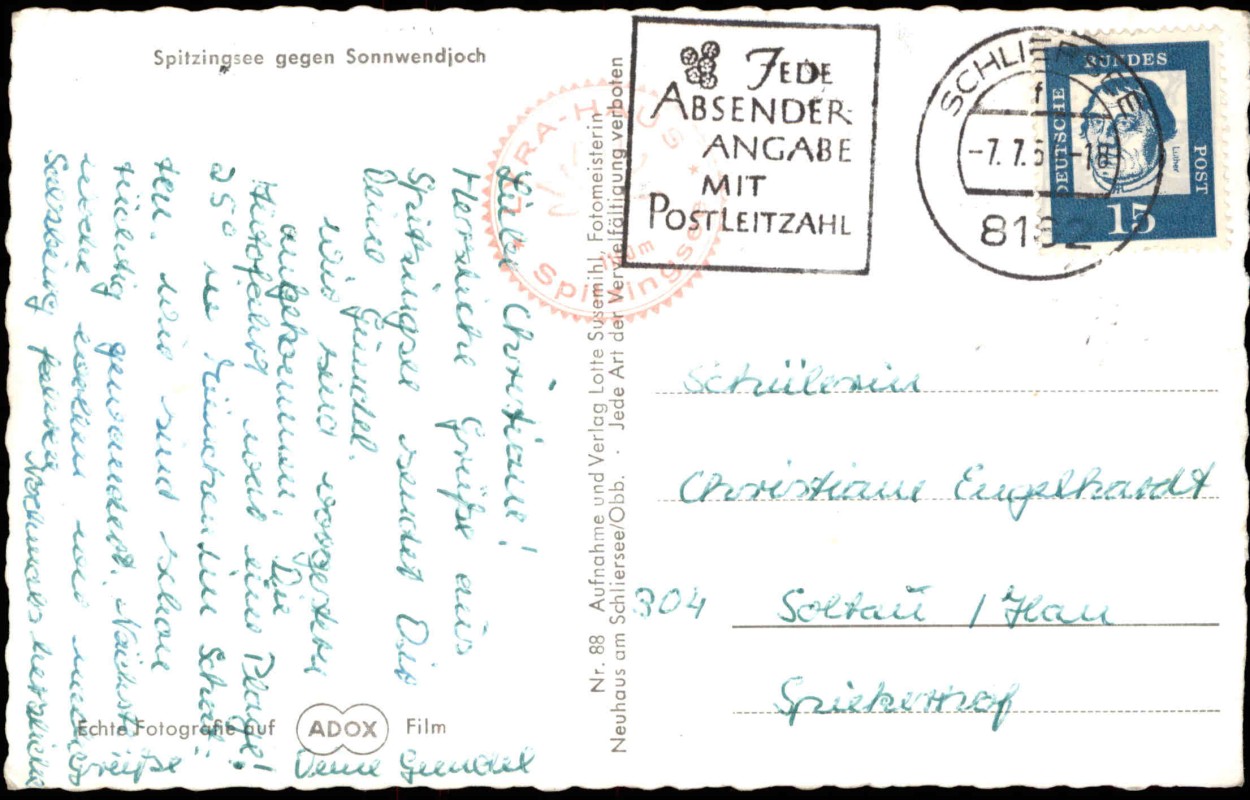 Spitzingsee gegen Sonnwendjoch
Liebe Christiane!
Herzliche Grüße aus
Spitzingsee sendet Dir
Deine Gundel.
Wir sind vorgestern
angekommen. Die
Autofahrt war eine Plage!
25° in München im Schat-
ten. Wir sind schon
tüchtig gewandert. Nächste
Woche wollen wir nach
Salzburg fahren. Nochmals herzliche
Grüße
Deine Gundel
Echte Fotografie auf ADOX Film
Nr. 88 Aufnahme und Verlag Lotte Susemihl, Fotomeisterin
Neuhaus am Schliersee/Obb. · Jede Art der Vervielfältigung verboten
-HAUS
Spitzingsee
JEDE
ABSENDER-
ANGABE
MIT
POSTLEITZAHL
SCHLIERSEE
f
-7.7.6 -18
8162
DEUTSCHE BUNDES POST
Luther
15
Schülerin
Christiane Engelhardt
304 Soltau / Han
Spiekerhof